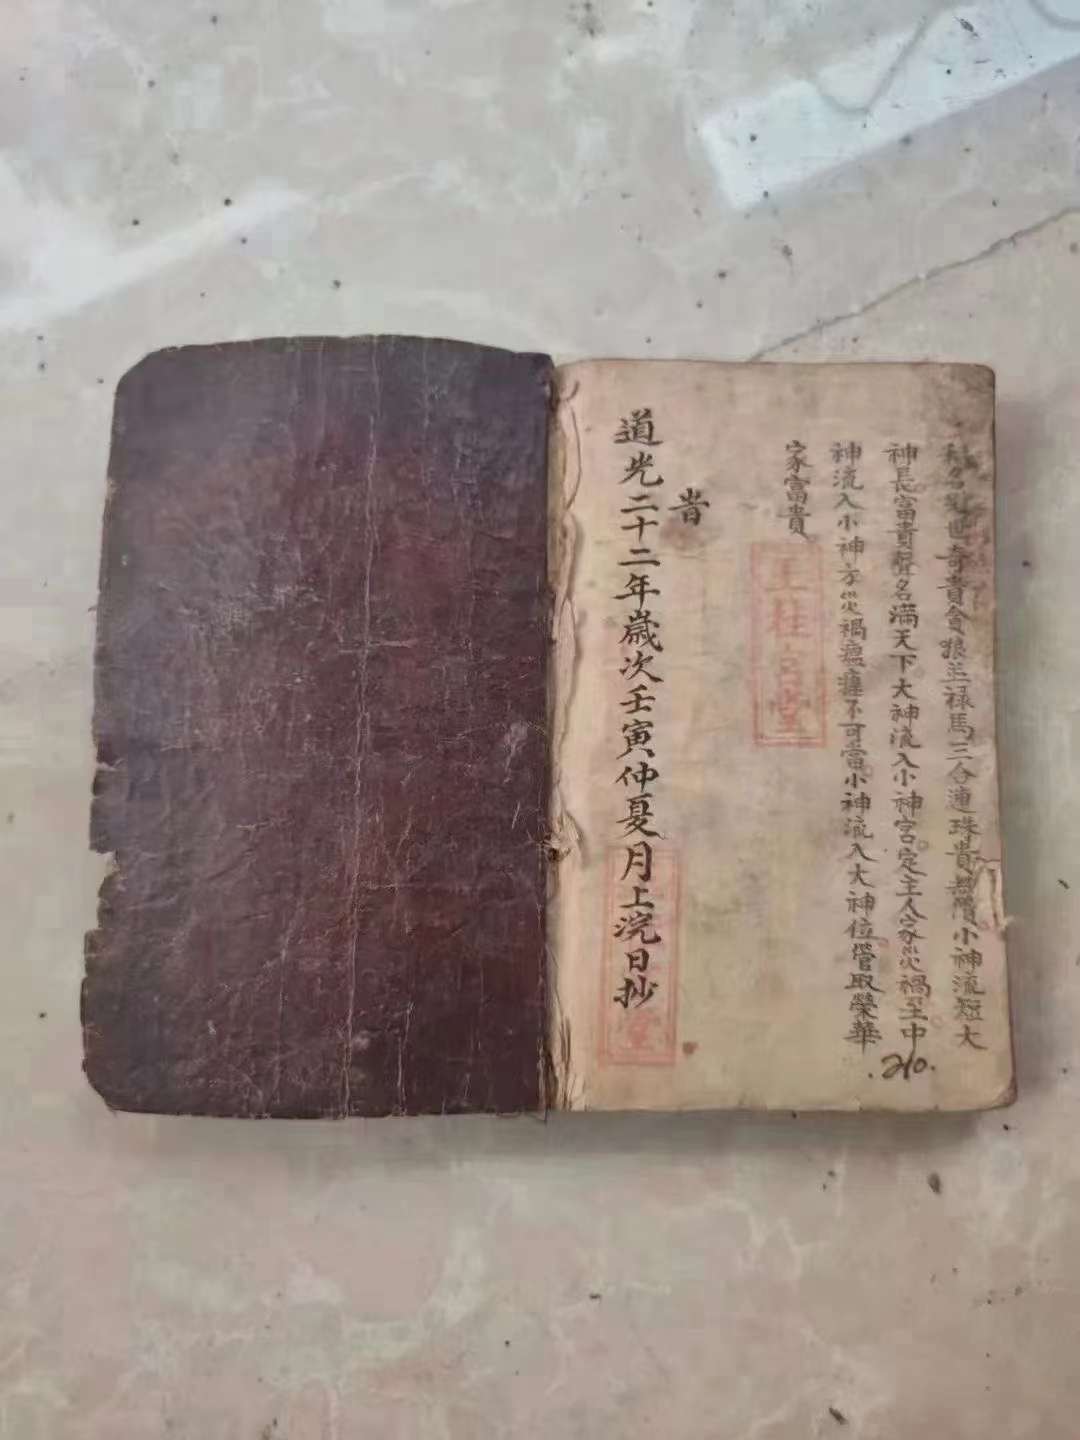 奇貴貪狼並禄馬三合連珠貴無價小神流短大
神長富貴聲名滿天下大神流入小神宮定主人家災禍至中
神流入小神方災禍瘟𤶣不可當小神流入大神位管取榮華
家富貴
王桂宮堂
昔
道光二十二年歲次壬寅仲夏月上浣日抄
堂
.210.